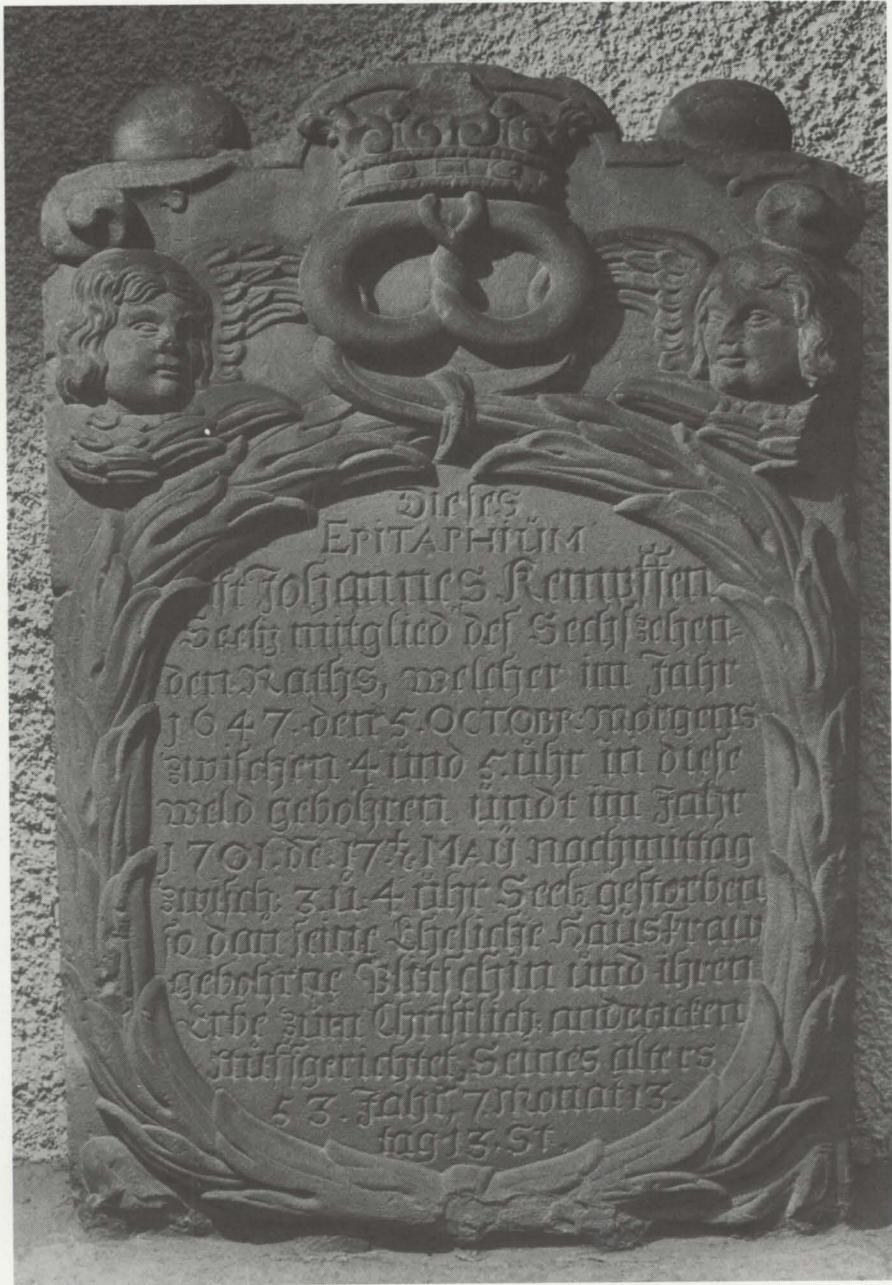 Dieses
EPITAPHIÜM
ist Johannes Kempffen
Seel: mitglied des Sechszehen-
den Raths, welcher im Jahr
1647. den 5. OCTOBR: Morgens
zwischen 4 ünd 5. ühr in diese
weld gebohren ündt im Jahr
1701. dē. 17 MAÿ nachmittag
zwisch: 3. ü. 4 ühr Seel: gestorben
so dan seine Eheliche Haüsfraw
gebohrne ünd ihren
Erbe züm Christlich: andencken
aüffgerichtet, Seines alters
53. Jahr, 7. Monat 13.
tag 13. St.